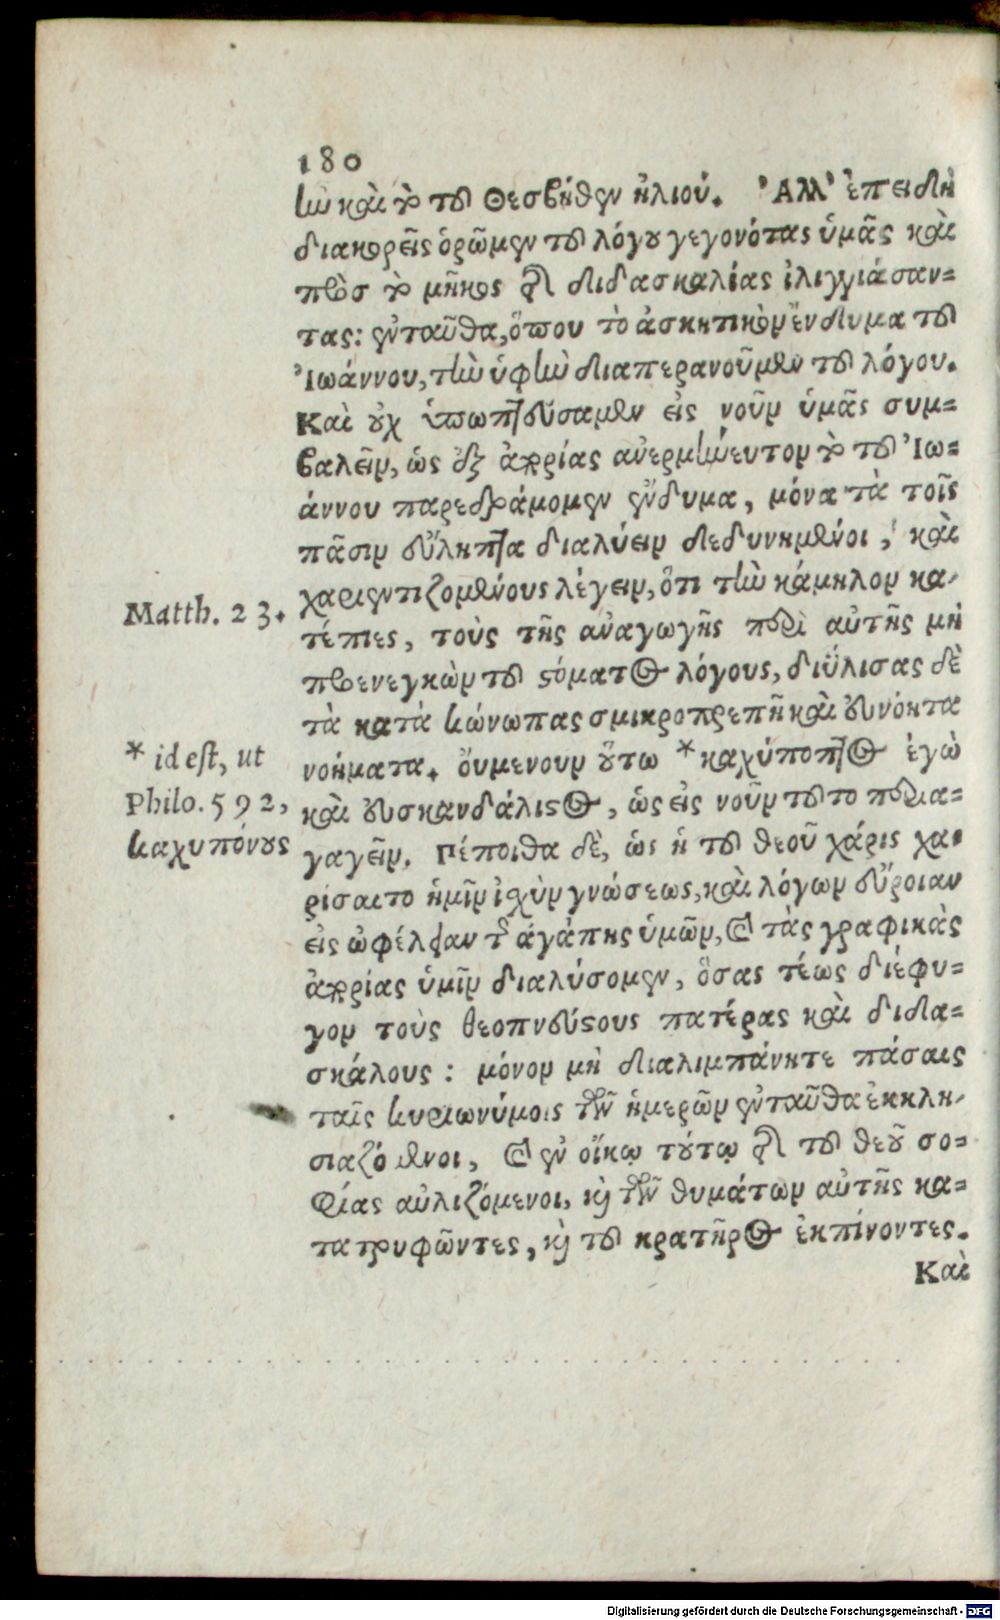 180
ἦν καὶ τὸ τοῦ Θεσβίτου ἡλιού. Ἀλλ' ἐπειδὴ
διακορεῖς ὁρῶμεν τοῦ λόγου γεγονότας ὑμᾶς καὶ
πρὸσ τὸ μῆκος τῆς διδασκαλίας ἰλιγγιάσαν-
τας: ἐνταῦθα, ὅπου τὸ ἀσκητικὸν ἔνδυμα τοῦ
Ἰωάννου, τὴν ὑφὴν διαπερανοῦμεν τοῦ λόγου.
Καὶ οὐχ ὑπωπτεύσαμεν εἰς νοῦν ὑμᾶς συμ-
βαλεῖν, ὡς ἐξ ἀπορίας ἀνερμήνευτον τὸ τοῦ Ἰω-
άννου παρεδράμομεν ἔνδυμα, μόνα τὰ τοῖς
πᾶσιν εὔληπτα διαλύειν δεδυνημένοι, καὶ
χαριεντιζομένους λέγειν, ὅτι τὴν κάμηλον κα-
Matth. 23.
τέπιες, τοὺς τῆς ἀναγωγῆς περὶ αὐτῆς μὴ
προενεγκὼν τοῦ στόματος λόγους, διΰλισας δὲ
τὰ κατὰ κώνωπας σμικροπρεπῆ καὶ εὐνόητα
* id est, ut
νοήματα. ὄυμενουν οὕτω * καχύποπτος ἐγὼ
Philo. 592,
καὶ εὐσκανδάλιστος, ὡς εἰς νοῦν τοῦτο περια-
καχυπόνους
γαγεῖν. Πέποιθα δὲ, ὡς ἡ τοῦ θεοῦ χάρις χα-
ρίσαιτο ἡμῖν ἰσχὺν γνώσεως, καὶ λόγων εὔροιαν
εἰς ὠφέλειαν τῆς ἀγάπης ὑμῶν, καὶ τὰς γραφικὰς
ἀπορίας ὑμῖν διαλύσομεν, ὅσας τέως διέφυ-
γον τοὺς θεοπνεύστους πατέρας καὶ διδα-
σκάλους: μόνον μὴ διαλιμπάνητε πάσαις
ταῖς κυριωνύμοις τῶν ἡμερῶν ἐνταῦθα ἐκκλη-
σιαζόμενοι, καὶ ἐν οἴκῳ τούτῳ τῆς τοῦ θεοῦ σο-
φίας αὐλιζόμενοι, καὶ τῶν θυμάτων αὐτῆς κα-
τατρυφῶντες, καὶ τοῦ κρατῆρος ἐκπίνοντες.
Καὶ
Digitalisierung gefördert durch die Deutsche Forschungsgemeinschaft - DFG